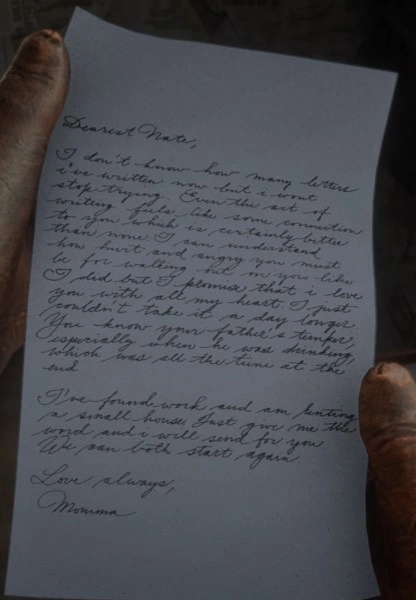 Dearest Nate,
I don't know how many letters
i've written now but i wont
stop trying. Even the act of
writing feels like some connection
to you which is certainly better
than none I can understand
how hurt and angry you must
be for walking out on you like
I did but I promise that i love
you with all my heart I just
couldn't take it a day longer.
You know your father's temper,
especially when he was drinking,
which was all the time at the
end
I've found work and am renting
a small house Just give me the
word and i will send for you
We can both start again
Love always,
Momma